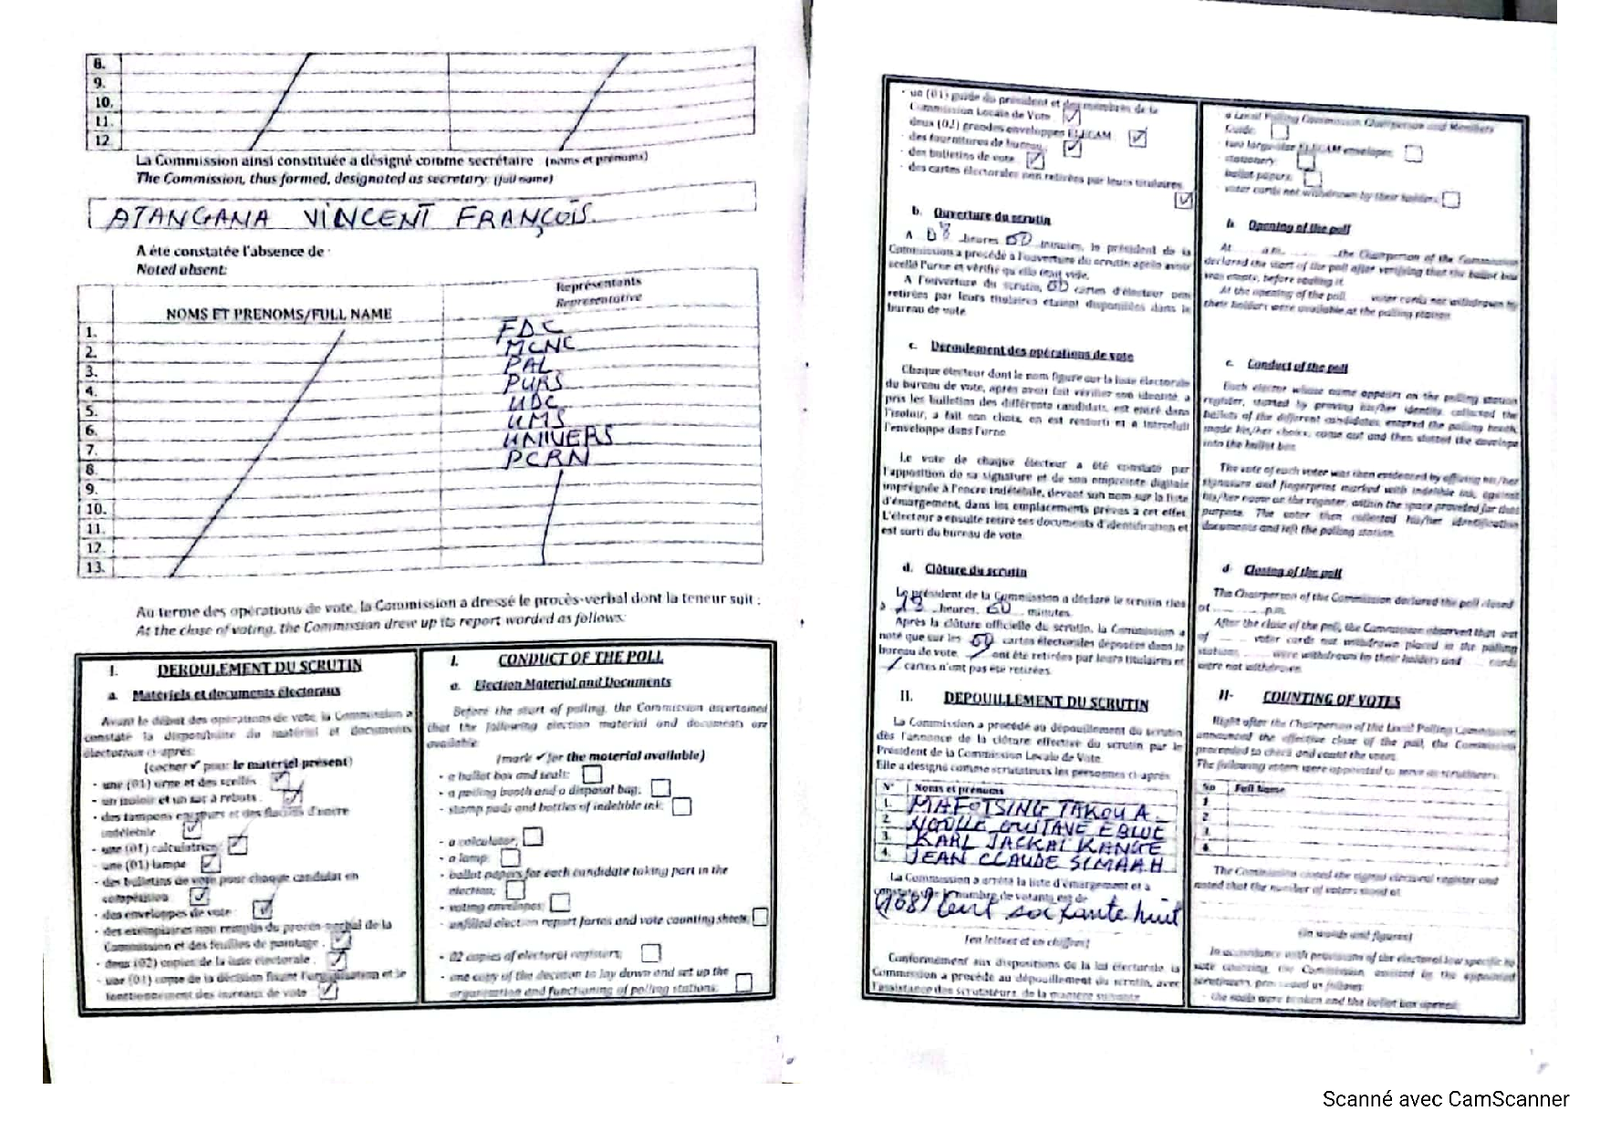 8.
9.
10.
11.
12.
La Commission ainsi constituée a désigné comme secrétaire (noms et prénoms)
The Commission, thus formed, designated as secretary: (full name)
ATANGANA VINCENT FRANÇOIS
A été constatée l'absence de :
Noted absent:
NOMS ET PRENOMS/FULL NAME
Représentants
Representative
1. FDC
2. MCNC
3. PAL
4. PURS
5. UDC
6. UMS
7. UNIVERS
8. PCRN
9.
10.
11.
12.
13.
Au terme des opérations de vote, la Commission a dressé le procès-verbal dont la teneur suit :
At the close of voting, the Commission drew up its report worded as follows:
I. DEROULEMENT DU SCRUTIN
a. Matériels et documents électoraux
Avant le début des opérations de vote, la Commission a
constaté la disponibilité du matériel et documents
électoraux ci-après:
(cocher ✓ pour le matériel présent)
- une (01) urne et des scellés
- un isoloir et un sac à rebuts
- des tampons encreurs et des flacons d'encre
indélébile
- une (01) calculatrice
- une (01) lampe
- des bulletins de vote pour chaque candidat en
compétition
- des enveloppes de vote
- des exemplaires non remplis du procès-verbal de la
Commission et des feuilles de pointage
- deux (02) copies de la liste électorale
- une (01) copie de la décision fixant l'organisation et le
fonctionnement des bureaux de vote
I. CONDUCT OF THE POLL
a. Election Material and Documents
Before the start of polling, the Commission ascertained
that the following election material and documents are
available
(mark ✓ for the material available)
- a ballot box and seals:
- a polling booth and a disposal bag:
- stamp pads and bottles of indelible ink:
- a calculator:
- a lamp:
- ballot papers for each candidate taking part in the
election;
- voting envelopes:
- unfilled election report forms and vote counting sheets:
- 02 copies of electoral registers:
- one copy of the decision to lay down and set up the
organization and functioning of polling stations:
- un (01) guide du président et des membres de la
Commission Locale de Vote
- deux (02) grandes enveloppes ELECAM
- des fournitures de bureau
- des bulletins de vote
- des cartes électorales non retirées par leurs titulaires
b. Ouverture du scrutin
A 08 heures 00 minutes, le président de la
Commission a procédé à l'ouverture du scrutin après avoir
scellé l'urne et vérifié qu'elle était vide.
A l'ouverture du scrutin, 00 cartes d'électeur non
retirées par leurs titulaires étaient disponibles dans le
bureau de vote.
c. Déroulement des opérations de vote
Chaque électeur dont le nom figure sur la liste électorale
du bureau de vote, après avoir fait vérifier son identité, a
pris les bulletins des différents candidats, est entré dans
l'isoloir, a fait son choix, en est ressorti et a introduit
l'enveloppe dans l'urne.
Le vote de chaque électeur a été constaté par
l'apposition de sa signature et de son empreinte digitale
imprégnée à l'encre indélébile, devant son nom sur la liste
d'émargement, dans les emplacements prévus à cet effet.
L'électeur a ensuite retiré ses documents d'identification et
est sorti du bureau de vote.
d. Clôture du scrutin
Le président de la Commission a déclaré le scrutin clos
à heures 00 minutes.
Après la clôture officielle du scrutin, la Commission a
noté que sur les 00 cartes électorales déposées dans le
bureau de vote, ont été retirées par leurs titulaires et
cartes n'ont pas été retirées.
II. DEPOUILLEMENT DU SCRUTIN
La Commission a procédé au dépouillement du scrutin
dès l'annonce de la clôture effective du scrutin par le
Président de la Commission Locale de Vote.
Elle a désigné comme scrutateurs les personnes ci-après
N° Noms et prénoms
1. MAFOTSING TAKOU A
2. GUSTAVE
3. KARL JACKAI KANGE
4. JEAN CLAUDE
La Commission a arrêté la liste d'émargement et a
constaté que le nombre de votants est de
(168) Cent soixante huit
(en lettres et en chiffres)
Conformément aux dispositions de la loi électorale, la
Commission a procédé au dépouillement du scrutin, avec
l'assistance des scrutateurs, de la manière suivante
a Local Polling Commission Chairperson and Members
Guide:
- two large-size ELECAM envelopes:
- stationery:
- ballot papers:
- voter cards not withdrawn by their holders:
b Opening of the poll
At a.m. the Chairperson of the Commission
declared the start of the poll after verifying that the ballot box
was empty, before sealing it.
At the opening of the poll voter cards not withdrawn by
their holders were available at the polling station
c. Conduct of the poll
Each elector whose name appears on the polling station
register, started by proving his/her identity, collected the
ballots of the different candidates, entered the polling booth,
made his/her choice, came out and then slotted the envelope
into the ballot box.
The vote of each voter was then evidenced by affixing his/her
signature and fingerprint marked with indelible ink, against
his/her name on the register, within the space provided for that
purpose. The voter then collected his/her identification
documents and left the polling station.
d- Closing of the poll
The Chairperson of the Commission declared the poll closed
at p.m.
After the close of the poll, the Commission observed that out
of voter cards not withdrawn placed in the polling
station, were withdrawn by their holders and cards
were not withdrawn.
II- COUNTING OF VOTES
Right after the Chairperson of the Local Polling Commission
announced the effective close of the poll, the Commission
proceeded to check and count the votes.
The following voters were appointed to serve as scrutineers:
S/n Full Name
1
2
3
4
The Commission closed the signed electoral register and
noted that the number of voters stood at
(in words and figures)
In accordance with provisions of the electoral law specific to
vote counting, the Commission, assisted by the appointed
scrutineers, proceeded as follows:
- the seals were broken and the ballot box opened;
Scanné avec CamScanner